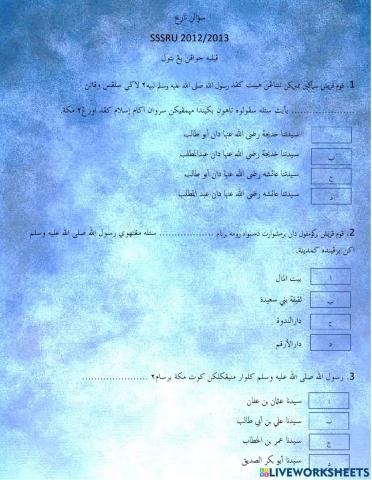 سوءالن تاريخ
SSSRU 2012/2013
ڤيليه جواڤن يڠ بتول
1. قوم قريش سماكين ممڤرڠ تنتاڠن هيبت كڤد رسول الله صلى الله عليه وسلم لاڬي سلڤس وفاتن
.................... باݢيندا سلڤس سڤولوه تاهون باݢيندا مڽمڤايكن سروان اڬام إسلام كڤد اورڠ٢ مكة.
ا سيدتنا خديجة رضي الله عنها دان أبو طالب
ب سيدتنا خديجة رضي الله عنها دان عبدالمطلب
ج سيدتنا عائشه رضي الله عنها دان أبو طالب
د سيدتنا عائشه رضي الله عنها دان عبد المطلب
2. قوم قريش بركومڤول دان برمشوارت دسبواه رومه برنام .................. ستله مڠتهوي رسول الله صلى الله عليه وسلم
اكن برڤينده كمدينة.
ا بيت المال
ب ثقيفة بني سعيدة
ج دارالندوة
د دارالأرقم
3. رسول الله صلى الله عليه وسلم كلوار منيڠݢلكن كوت مكة برسام٢ ......................
ا سيدنا عثمان بن عفان
ب سيدنا علي بن أبي طالب
ج سيدنا عمر بن الخطاب
د سيدنا أبو بكر الصديق
LIVEWORKSHEETS